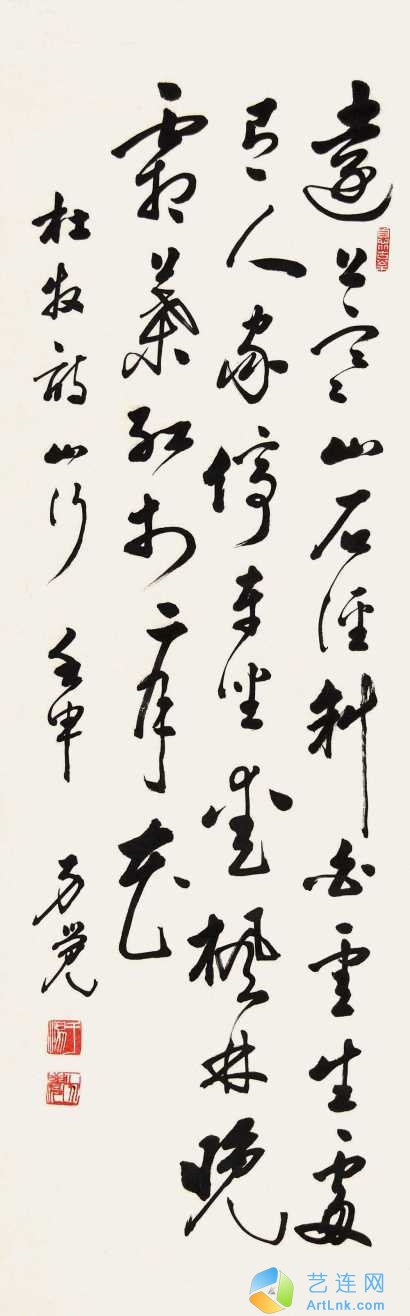 遠上寒山石徑斜白雲生處
有人家停車坐愛楓林晚
霜葉紅於二月花
杜牧詩山行 壬申
艺连网
ArtLnk.com